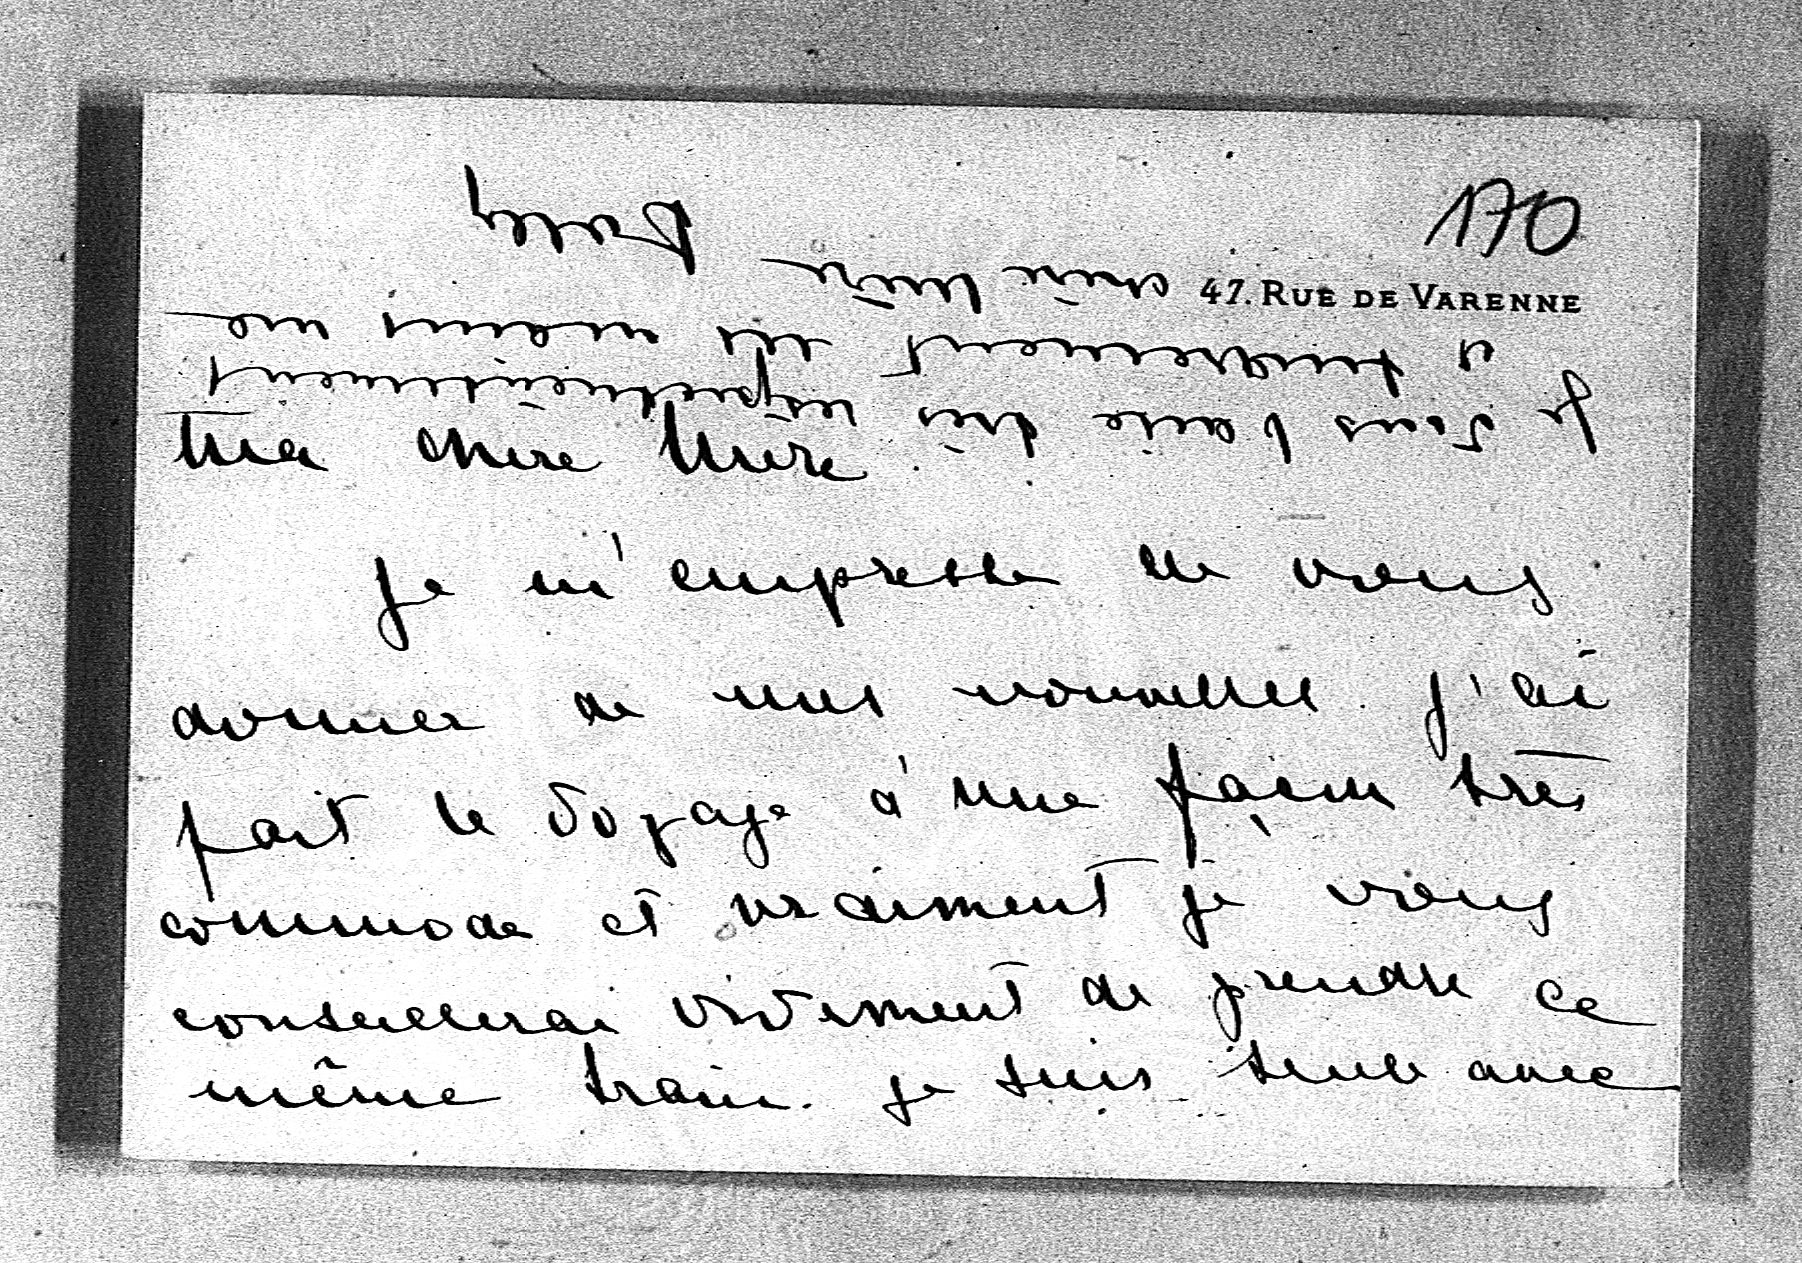 170
47. RUE DE VARENNE
Ma chère Mère.
Je m'empresse de vous
donner de mes nouvelles. J'ai
fait le voyage d'une façon très
commode et vraiment je vous
conseillerai vivement de prendre ce
même train. Je suis seule avec
Je vous baise très respectueusement
et tendrement les mains ma
chère Mère
Dolly